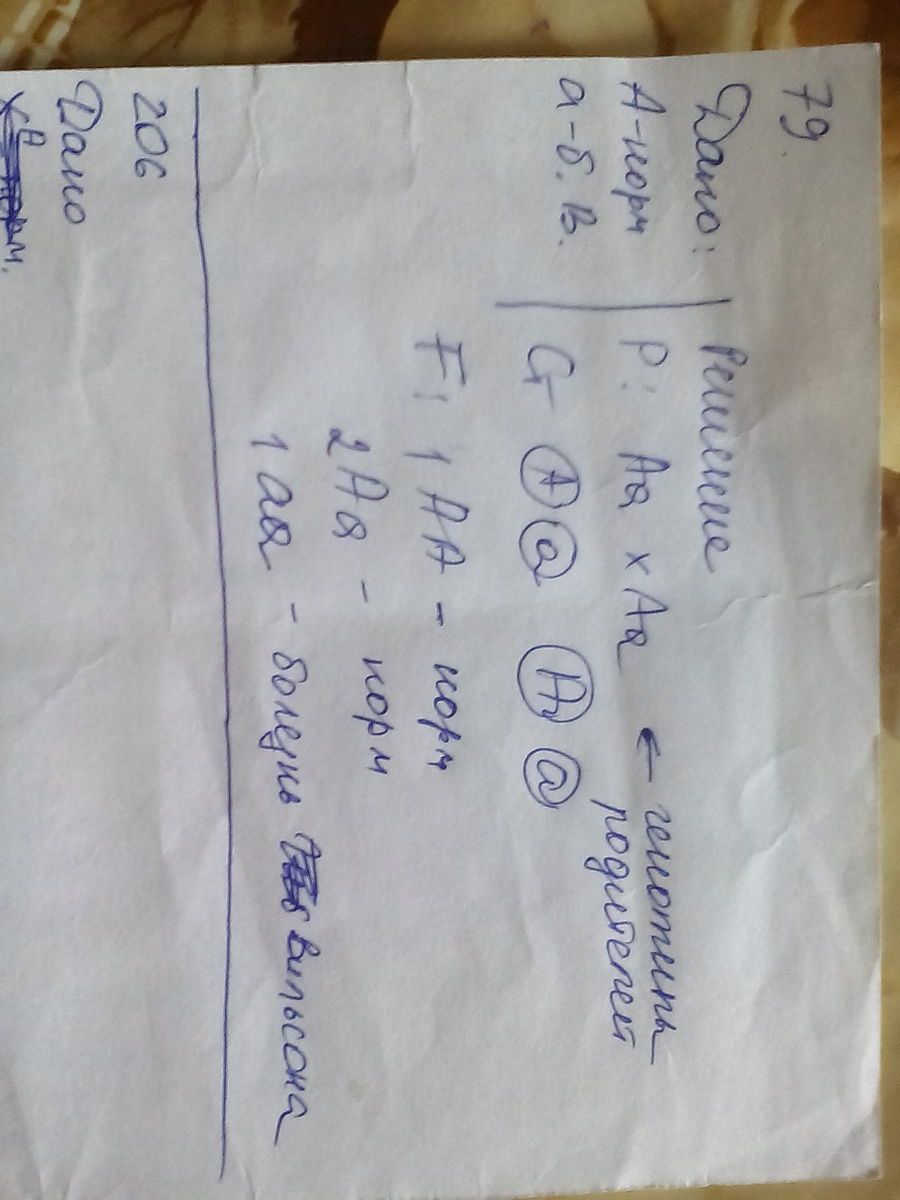 79.
Дано:
А-норм
а-б. В.
Решение
P: Aa x Aa ← генотипы
родителей
G A a A a
F1 1 AA - норм
2 Aa - норм
1 aa - болезнь Вильсона
206
Дано